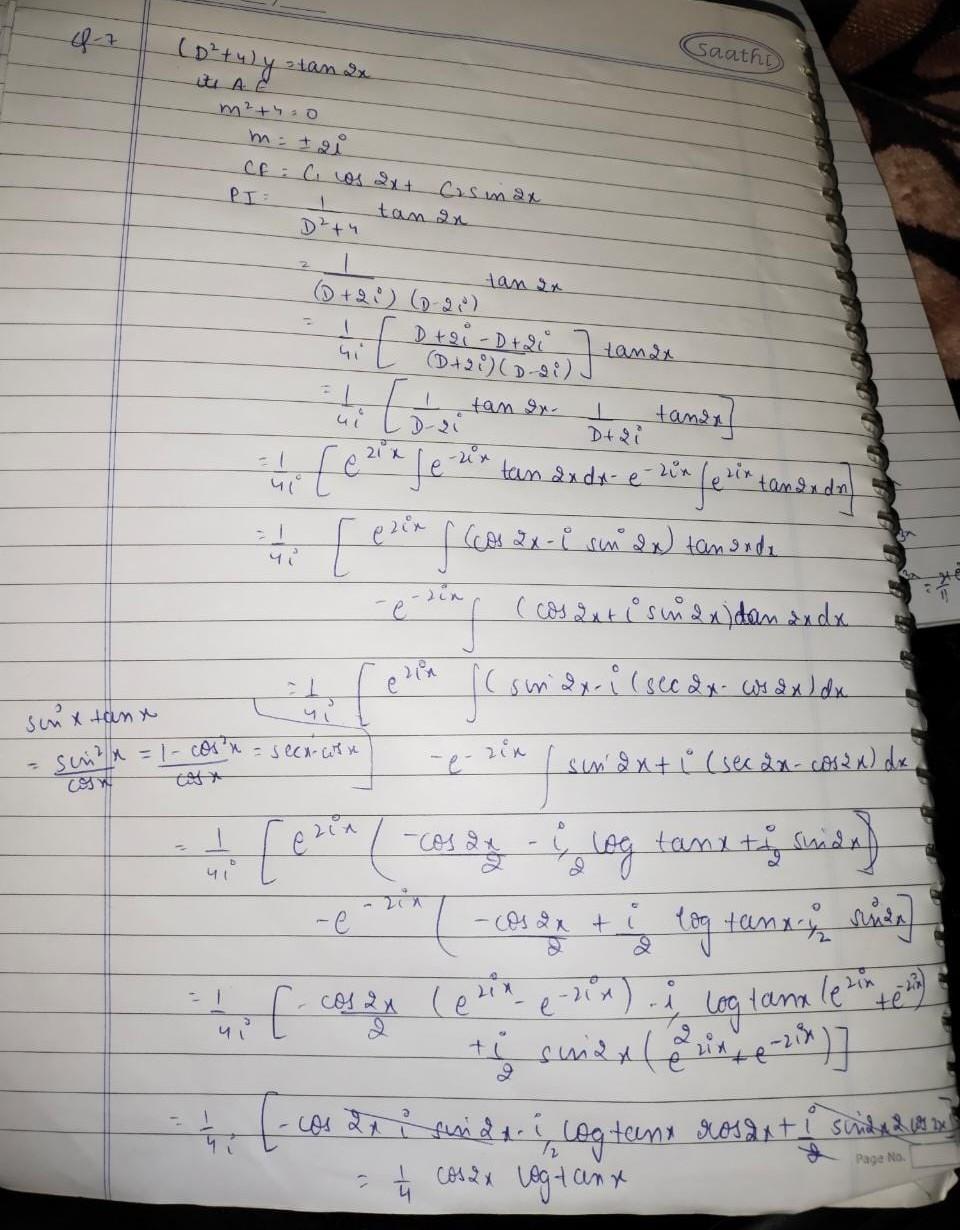 Saathi
Q-7 (D²+4)y = tan 2x
its A.E
m²+4=0
m = ±2i
CF = C₁ cos 2x + C₂ sin 2x
PI = 1/(D²+4) tan 2x
= 1/((D+2i)(D-2i)) tan 2x
= 1/4i [ (D+2i-D+2i)/((D+2i)(D-2i)) ] tan2x
= 1/4i [ 1/(D-2i) tan 2x - 1/(D+2i) tan2x ]
= 1/4i [ e^(2ix) ∫e^(-2ix) tan 2x dx - e^(-2ix) ∫e^(2ix) tan2x dx ]
= 1/4i [ e^(2ix) ∫ (cos 2x - i sin 2x) tan 2x dx
- e^(-2ix) ∫ (cos 2x + i sin 2x) tan 2x dx
= 1/4i [ e^(2ix) ∫ ( sin 2x - i (sec 2x - cos 2x) dx
sin x tan x
= sin²x/cos x = (1 - cos²x)/cos x = sec x - cos x ] - e^(-2ix) ∫ sin 2x + i (sec 2x - cos2x) dx
= 1/4i [ e^(2ix) ( -cos 2x/2 - i/2 log tanx + i/2 sin2x )
- e^(-2ix) ( -cos 2x/2 + i/2 log tanx - i/2 sin2x ]
= 1/4i [ - cos 2x/2 (e^(2ix) - e^(-2ix)) - i/2 log tanx (e^(2ix) + e^(-2ix))
+ i/2 sin2x ( e^(2ix) + e^(-2ix) ) ]
= 1/4i [ - cos 2x i sin 2x - i/2 log tanx 2cos2x + i/2 sin2x 2 cos 2x ]
Page No.
= 1/4 cos2x log tanx